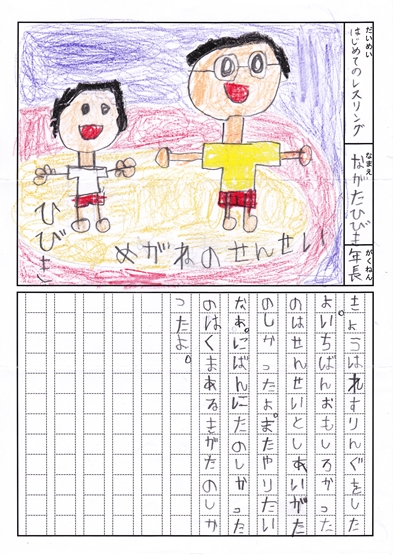 だいめい
はじめてのレスリング
なまえ
ながたひびき
がくねん
年長
ひびき
めがねのせんせい
きょうはれすりんぐをした
よ。いちばんおもしろかった
のはせんせいとしあいがた
のしかったよ。またやりたい
なあ。にばんにたのしかった
のはくまあるきがたのしか
ったよ。